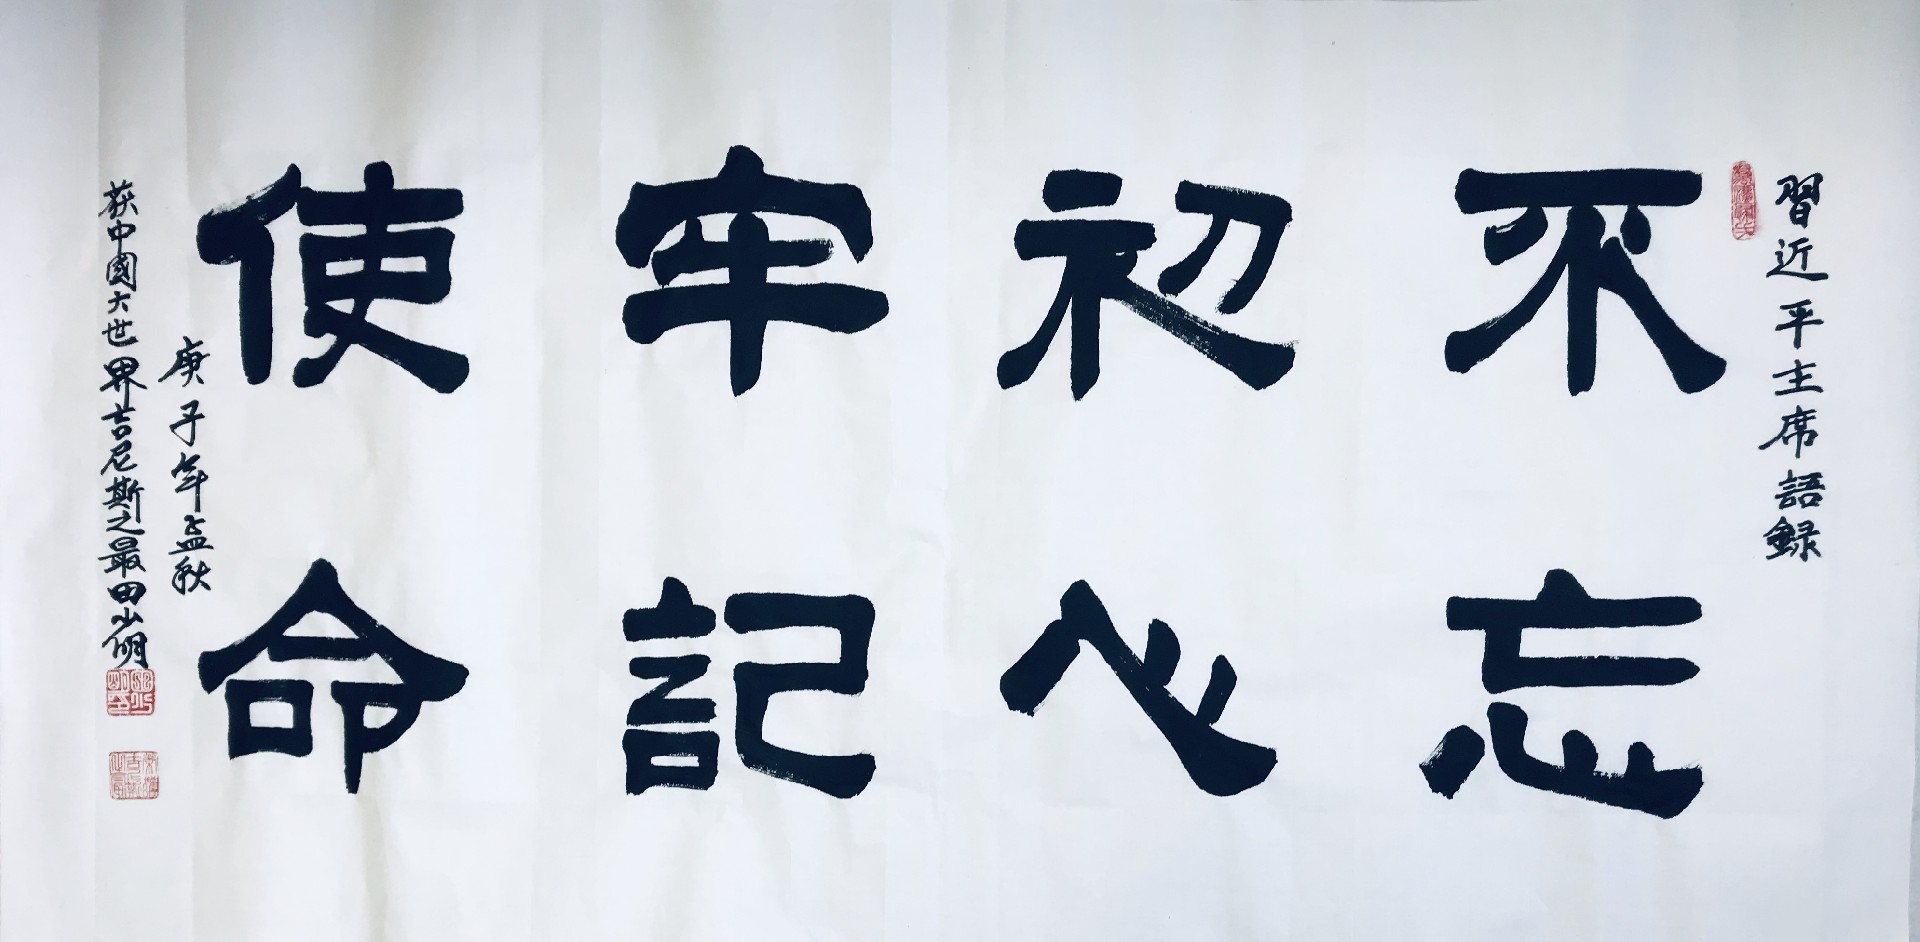 習近平主席語録
不忘
初心
牢記
使命
庚子年孟秋
获中國大世界吉尼斯之最田少明